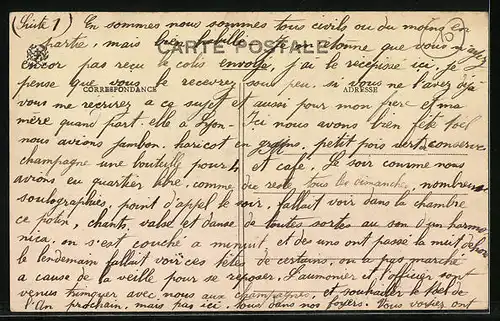 (Suite 1) En sommes nous sommes tous civils ou du moins en
partie, mais bien habillé. m'étonne que vous n'ayez
CARTE POSTALE
encor pas reçu le colis envoyé, j'ai le récépissé ici, je
CORRESPONDANCE
ADRESSE
pense que vous le recevrez sous peu. si vous ne l'avez déjà
vous me recrirez a ce sujet et aussi pour mon pere et ma
mère quand part-elle a Lyon-
Ici nous avons bien fêté
nous avions jambon, haricot en grains, petit pois vert conserve
champagne une bouteille pour 4 et café. Le soir comme nous
avions eu quartier libre, comme du reste tous les dimanches, nombreuses
soulographies, point d'appel le soir, fallait voir dans la chambre
ce potin, chants, valse et danse de toutes sortes au son d'un harmo
nica, on s'est couché a minuit, et des uns ont passé la nuit dehors
le lendemain fallait voir ces têtes de certains, on a pas marché
a cause de la veille pour se reposer, l'aumonier et l'officier sont
venus trinquer avec nous aux champagnes, et souhaiter le
l'An prochain, mais pas ici, tous dans nos foyers. Vous